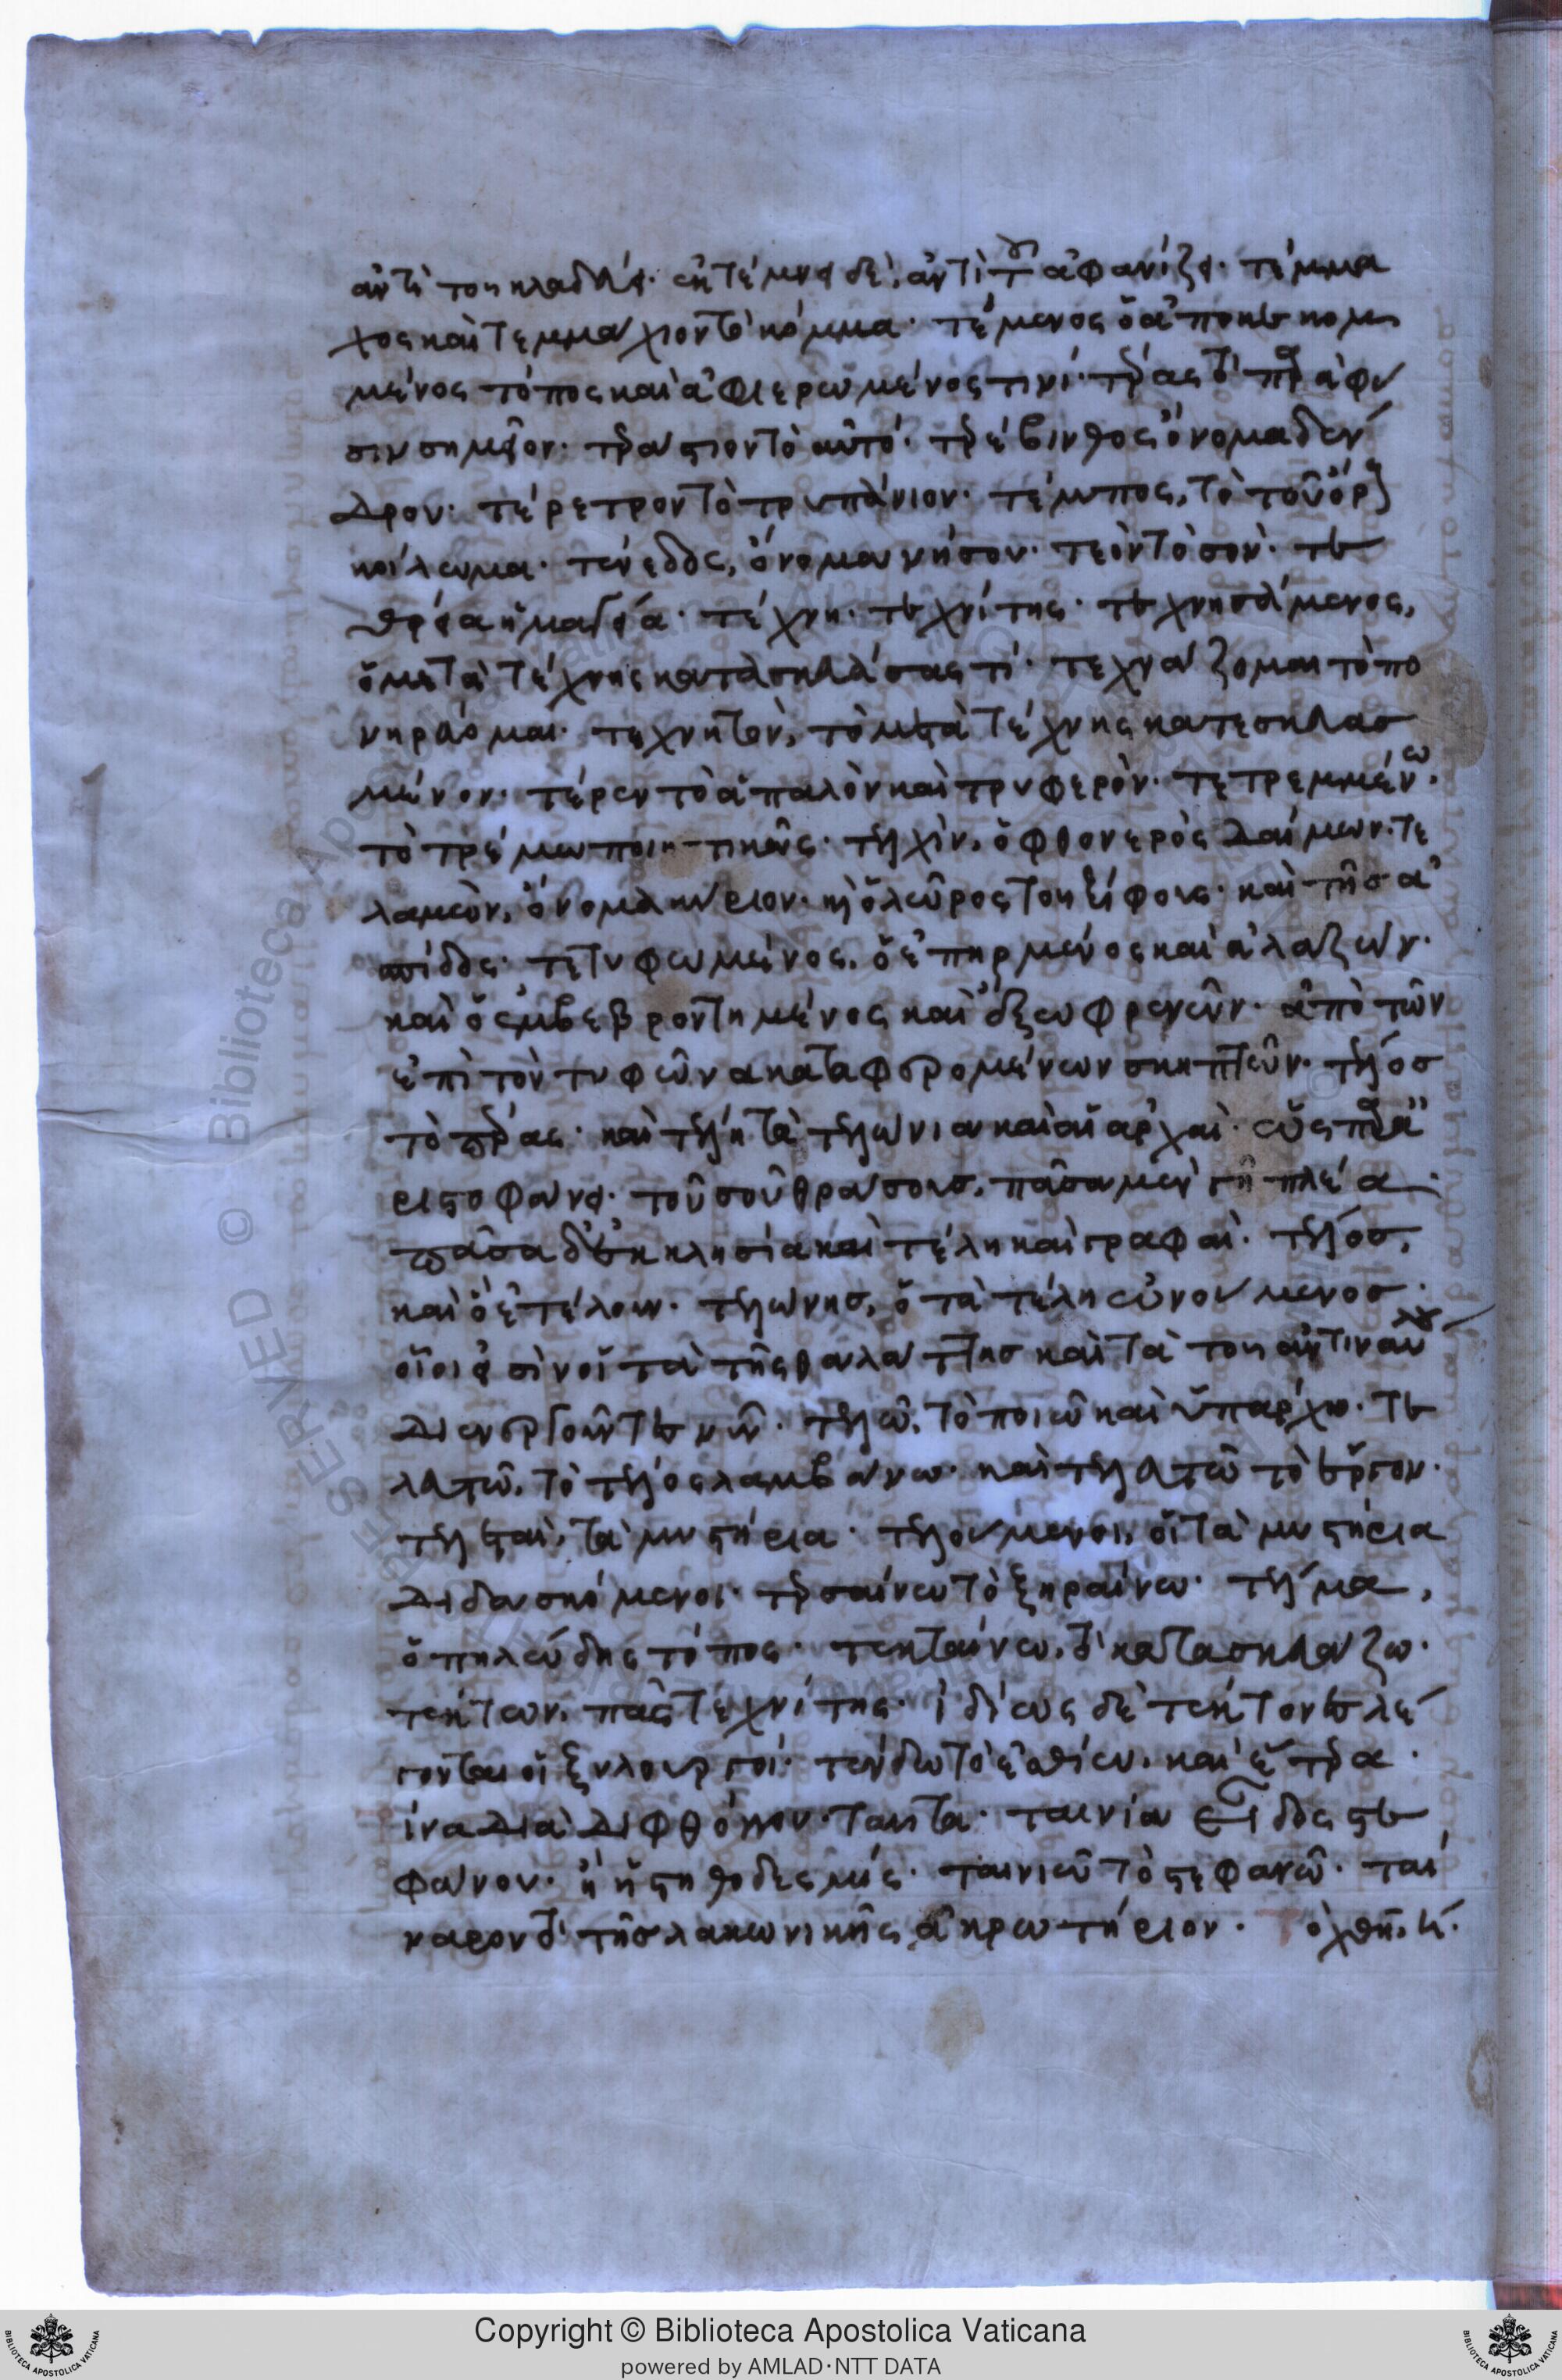 ἀντὶ τοῦ κλαδεύει· ἐκτέμνει δὲ, ἀντὶ τοῦ ἀφανίζει· τέμμα
χος καὶ τεμμάχιον τὸ κόμμα· τέμενος ὁ ἀποκεκομ
μένος τόπος καὶ ἀφιερωμένος τινί· τέρας τὸ παρὰ φύ
σιν σημεῖον· τεράστιον τὸ αὐτό· τερέβινθος ὄνομα δέν
δρου· τέρετρον τὸ τρυπάνιον· τέμπος, τὸ τοῦ ὄρους
κοίλωμα· τένεδος, ὄνομα νήσου· τεὸν τὸ σὸν· τε
θρεία ἡ μαγεία· τέχνη· τεχνίτης· τεχνησάμενος,
ὁ μετὰ τέχνης κατασκευάσας τί· τεχνάζομαι τὸ πο
νηρεύομαι· τεχνητὸν, τὸ μετὰ τέχνης κατεσκευασ
μένον· τέρεν τὸ ἁπαλὸν καὶ τρυφερὸν· τετρεμμένω,
τὸ τρέμω ποιητικῶς· τελχὶν, ὁ φθονερὸς δαίμων· τε
λαμὼν, ὄνομα κύριον· καὶ ὁ λῶρος τοῦ ξίφους· καὶ τῆς ἀ
σπίδος· τετυφωμένος, ὁ ἐπηρμένος καὶ ἀλαζών·
καὶ ὁ ἐμβεβροντημένος καὶ ἔξω φρενῶν· ἀπὸ τῶν
ἐπὶ τὸν τυφῶνα καταφερομένων σκηπτῶν· τέλος
τὸ πέρας· καὶ τέλη τὰ τελώνια καὶ αἱ ἀρχαὶ· ὡς παρὰ ἀ
ριστοφάνει· τοῦ σοῦ θράσους, πᾶσα μὲν γῆ πλέα·
πᾶσα δ' ἐκκλησία καὶ τέλη καὶ γραφαὶ· τέλος,
καὶ ὁ ἐτέλουν· τελώνης, ὁ τὰ τέλη ὠνούμενος·
οἷοι εἰσὶν οἱ τὰ τῆς θαλάττης καὶ τὰ τοῦ
διενεργοῦντες νῦν· τελῶ, τὸ ποιῶ καὶ ὑπάρχω· τε
λευτῶ, τὸ τέλος λαμβάνω· καὶ τελευτῶ τὸ ἔργον·
τελεταὶ, τὰ μυστήρια· τελούμενοι, οἱ τὰ μυστήρια
διδασκόμενοι· τερσαίνω τὸ ξηραίνω· τέλμα,
ὁ πηλώδης τόπος· τεκταίνω, τὸ κατασκευάζω·
τέκτων, πᾶς τεχνίτης· ἰδίως δὲ τέκτονες λέ
γονται οἱ ξυλουργοί· τένδω τὸ ἐσθίω, καὶ ἕτερα·
ἵνα διὰ διφθόγγου· ταῦτα· ταινία εἶδος στε
φάνου· ἢ ἡ στηθοδεσμίς· ταινιῶ τὸ στεφανῶ· ταί
ναρον τὸ τῆς λακωνικῆς ἀκρωτήριον·